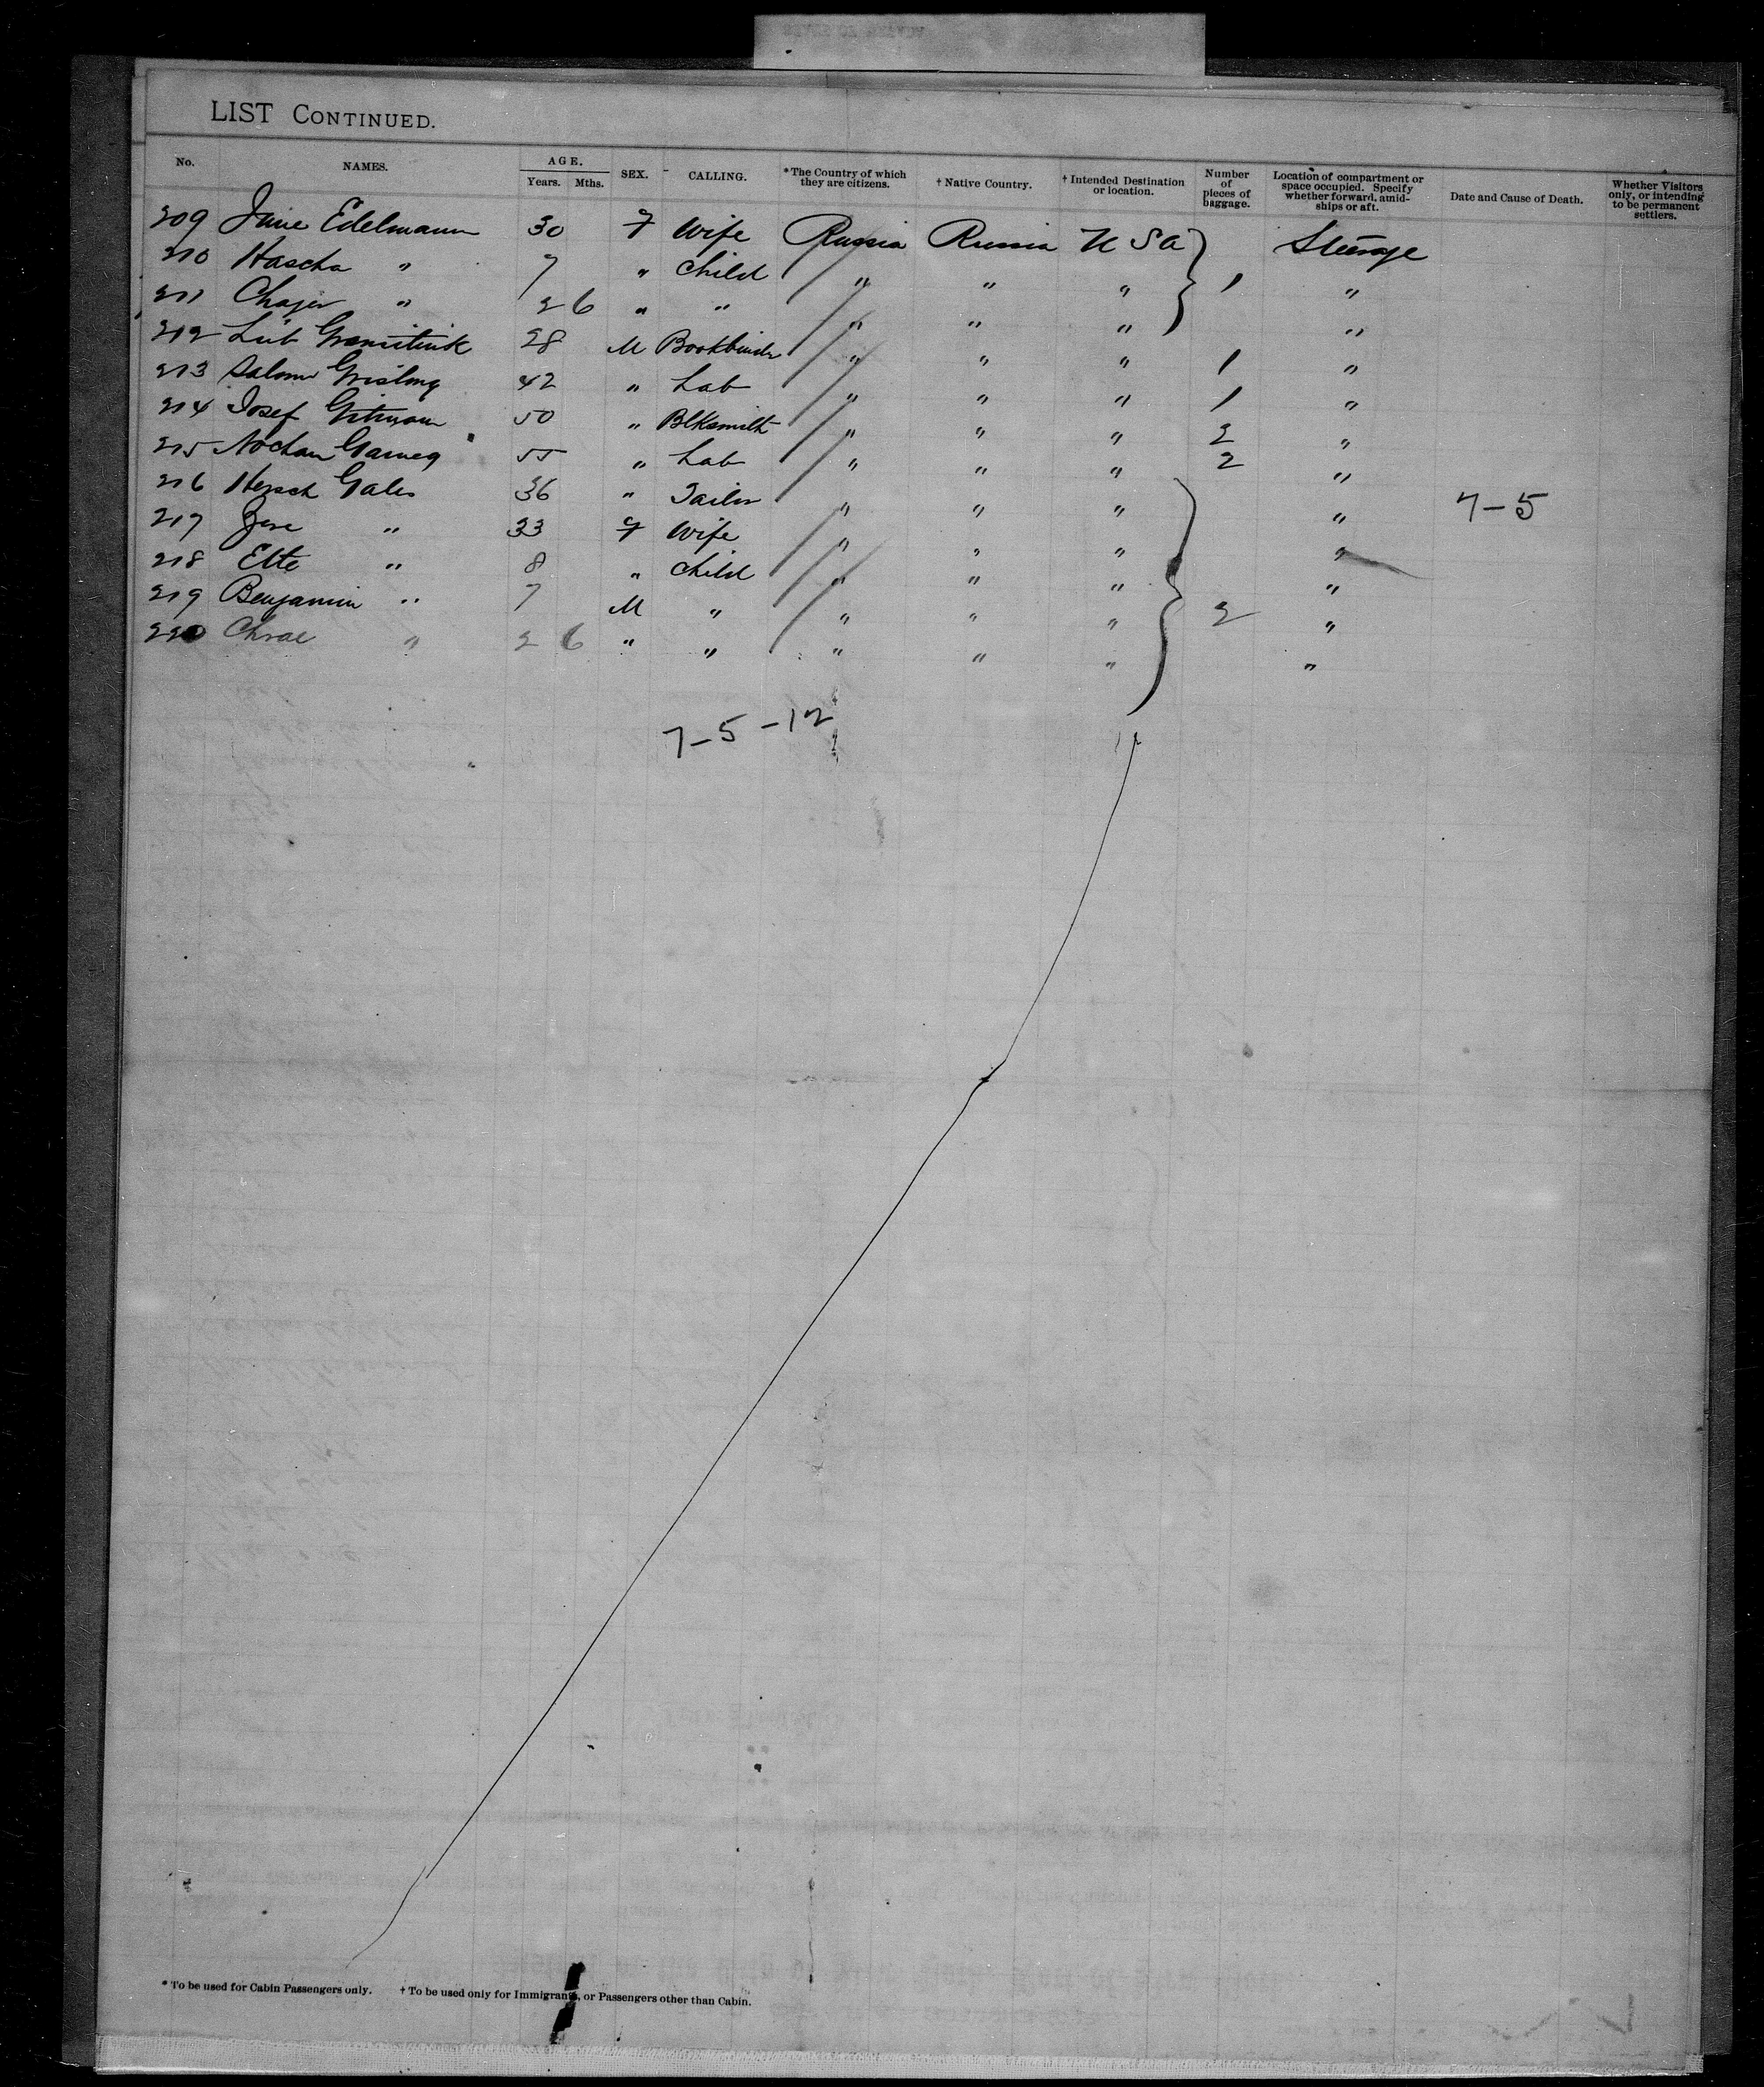 LIST CONTINUED.
No. NAMES. AGE. Years. Mths. SEX. CALLING. *The Country of which they are citizens. †Native Country. †Intended Destination or location. Number of pieces of baggage. Location of compartment or space occupied. Specify whether forward, amidships or aft. Date and Cause of Death. Whether Visitors only, or intending to be permanent settlers.
209 Edelmann 30 F Wife Russia Russia U S A Steerage
210 Hascha " 7 " Child " " " 1 "
211 " 2 6 " " " " " "
212 28 M Bookbinder " " " 1 "
213 42 " Lab " " " 1 "
214 Josef 50 " Blksmith " " " 2 "
215 55 " Lab " " " 2 "
216 Hersch 36 " Tailor " " " " 7-5
217 " 33 F Wife " " " "
218 Ette " 8 " Child " " " "
219 Benjamin " 7 M " " " " 2 "
220 " 2 6 " " " " " "
7-5-12
* To be used for Cabin Passengers only. † To be used only for Immigrants, or Passengers other than Cabin.